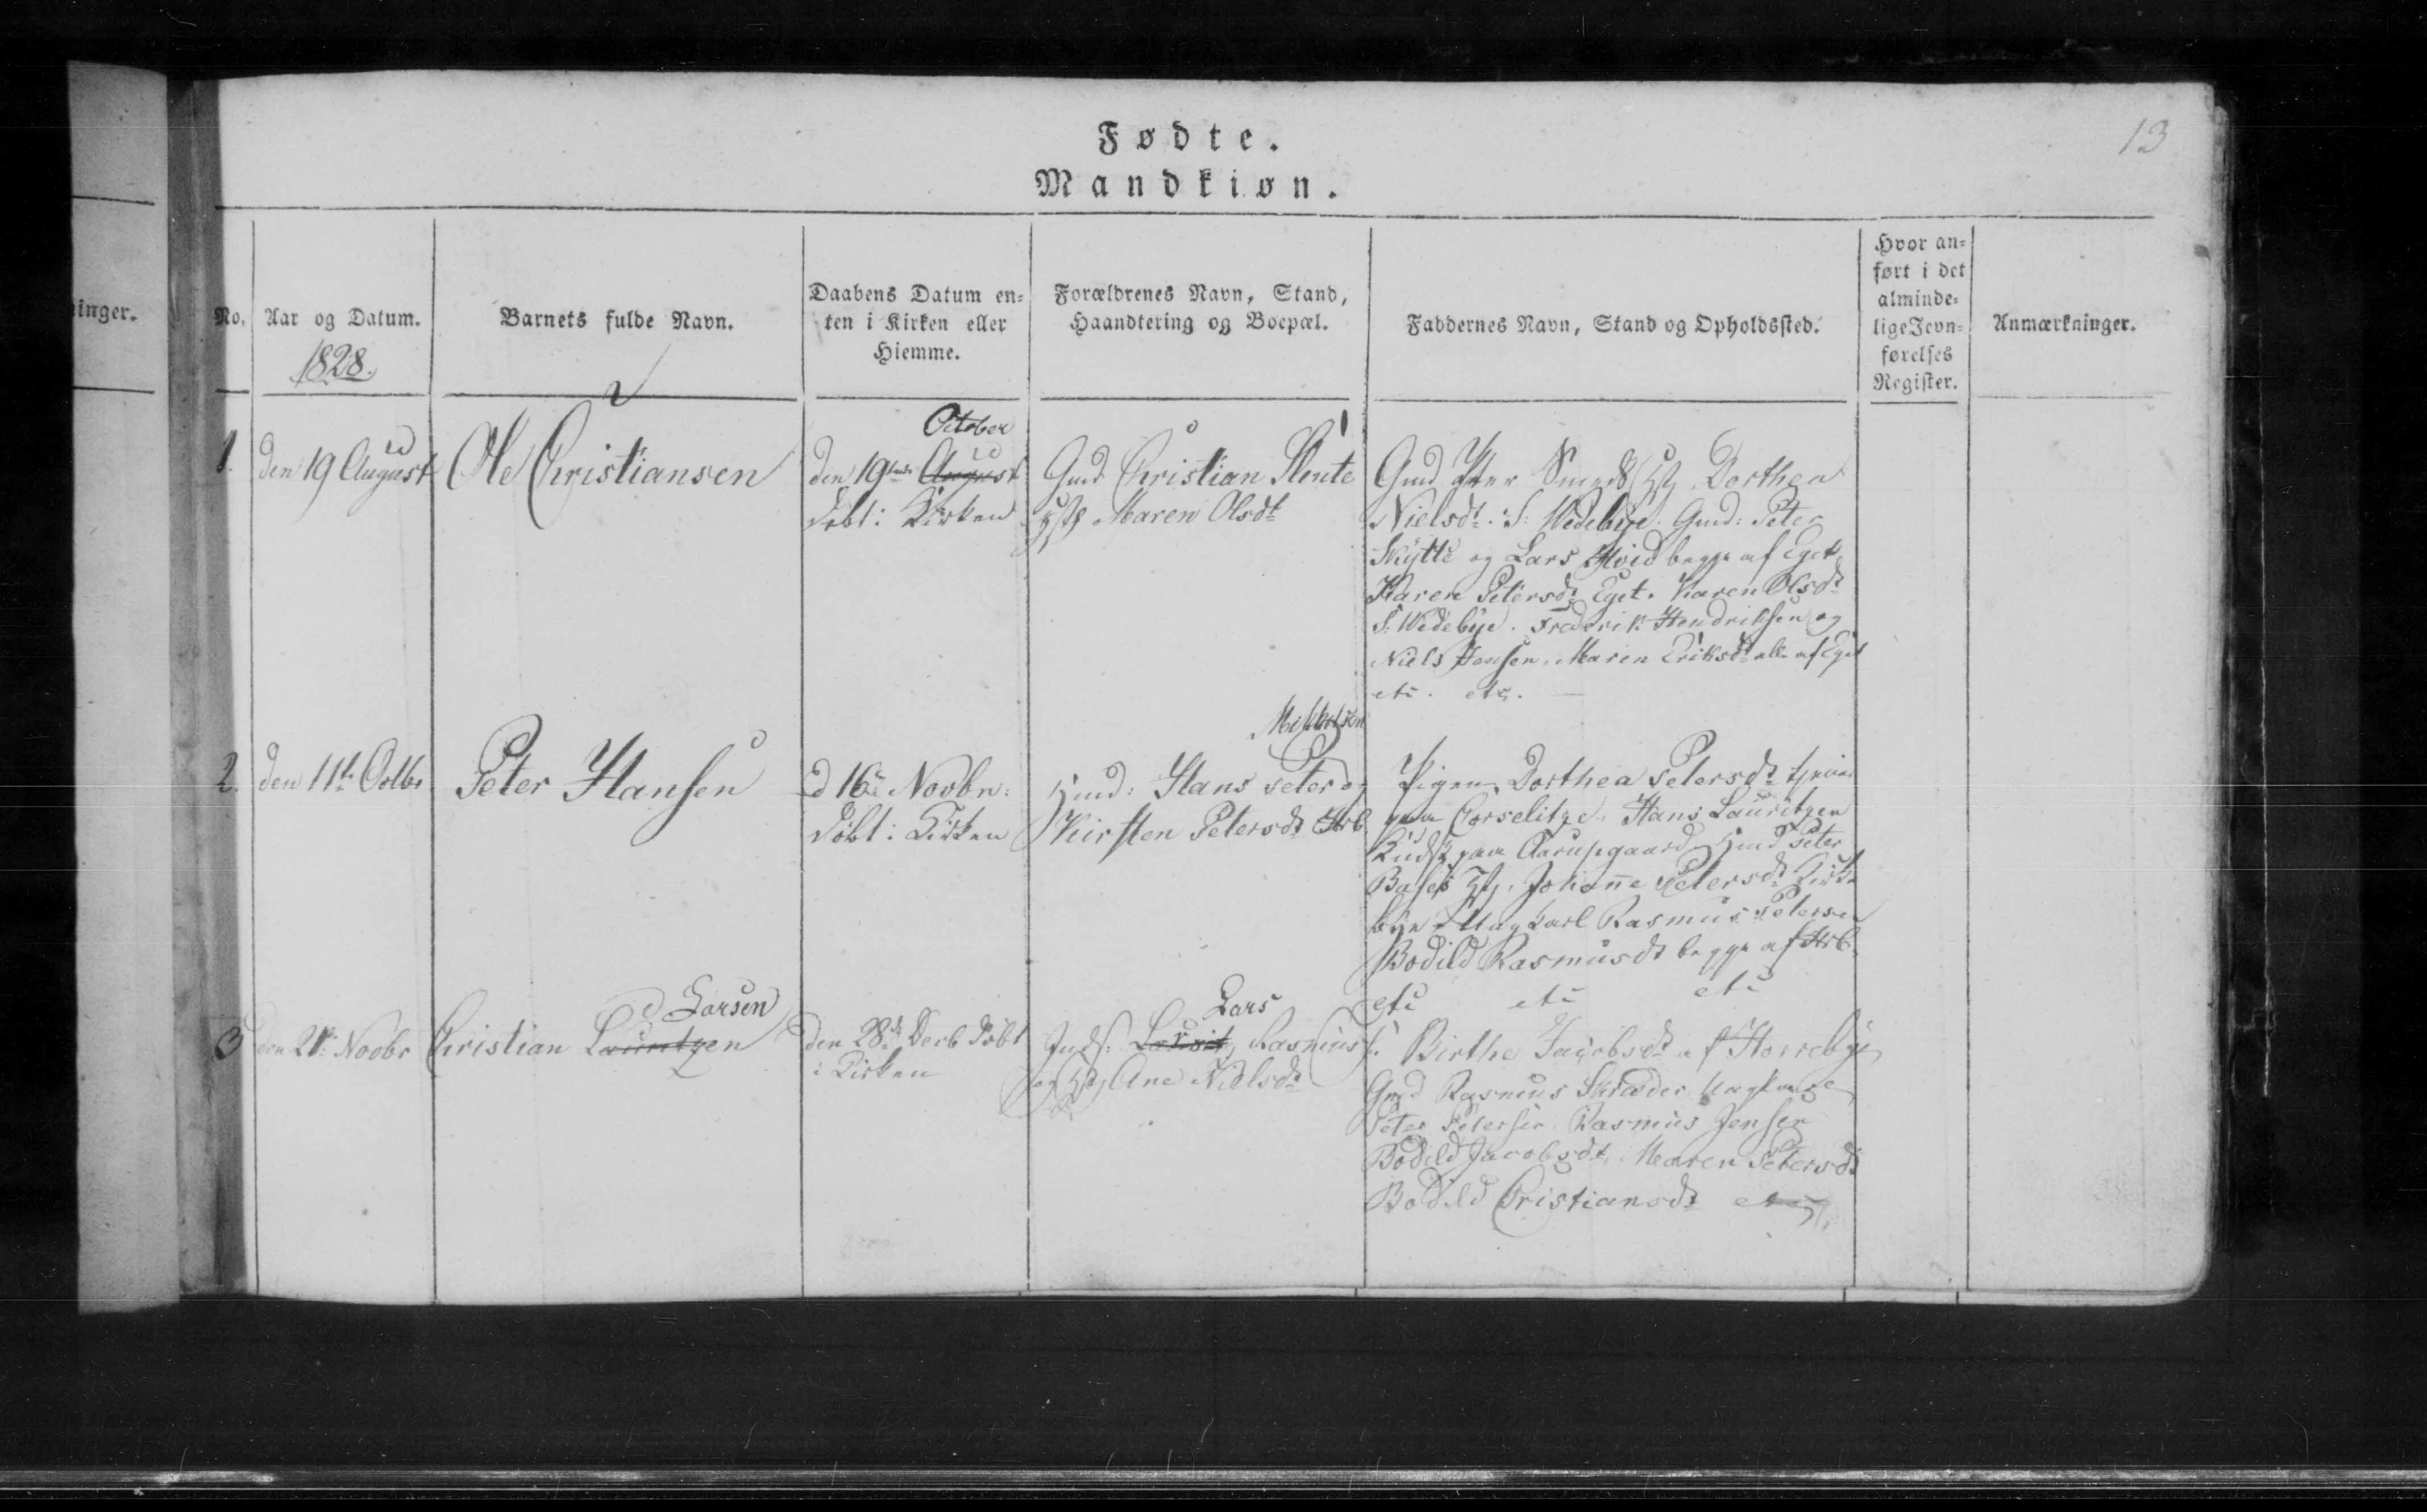 13
Fødte.
Mandkiøn.
inger.
No.
Aar og Datum.
1828.
Barnets fulde Navn.
Daabens Datum en-
ten i Kirken eller
Hiemme.
Forældrenes Navn, Stand,
Haandtering og Boepæl.
Faddernes Navn, Stand og Opholdssted.
Hvor an-
ført i det
alminde-
lige Jevn-
førelses
Register.
Anmærkninger.
1.
den 19 August
Ole Christiansen
October
den 19de August
døbt i Kirken
Gmd Christian
Maren Olsdt
Gmd Smeds Dorthea
Nielsdt. S: Wedebye. Gmd: Peter
Skytte og Lars Hvid begge af Eget
Karen Petersdt Eget. Karen Olsdt
S: Wedebye. Frederik Hendriksen og
Niels Hansen. Maren Eriksdt alle af Eget
etc. etc.
2.
den 11te Octbr
Peter Hansen
d 16de Novbr:
døbt i Kirken
Mikkelsen
Hmd: Hans Peter og
Kirsten Petersdt Hrb
Pigen Dorthea Petersdt tjener
paa Corselitze. Hans Lauritzen
Kudsk paa Aarupgaard Hmd Peter
Johanne Petersdt Kirke
bye Ungkarl Rasmus Petersen
Bodild Rasmusdt begge af Hrb.
etc etc etc
3
den 21de Novbr
Larsen
Christian Lauritzen
den 28de Decb døbt
i Kirken
Lars
Inds: Lauritz Rasmus
og Ane Nielsdt
Birthe Jacobsdt af Horrebye
Gmd Rasmus Skræder Ungkarle
Peter Petersen Rasmus Jensen
Bodild Jacobsdt, Maren Petersdt
Bodild Cristiansdt etc